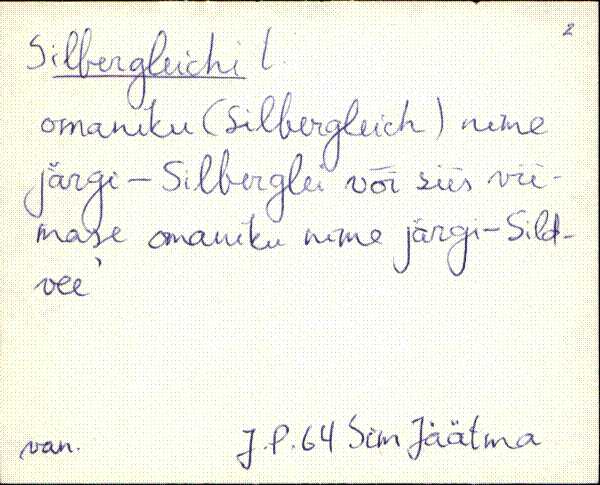 2
Silbergleichi l.
omaniku (Silbergleich) nime
järgi – Silberglei või siis vii-
mase omaniku nime järgi – Sild-
vee'
van. J.P. 64 Sim Jäätma